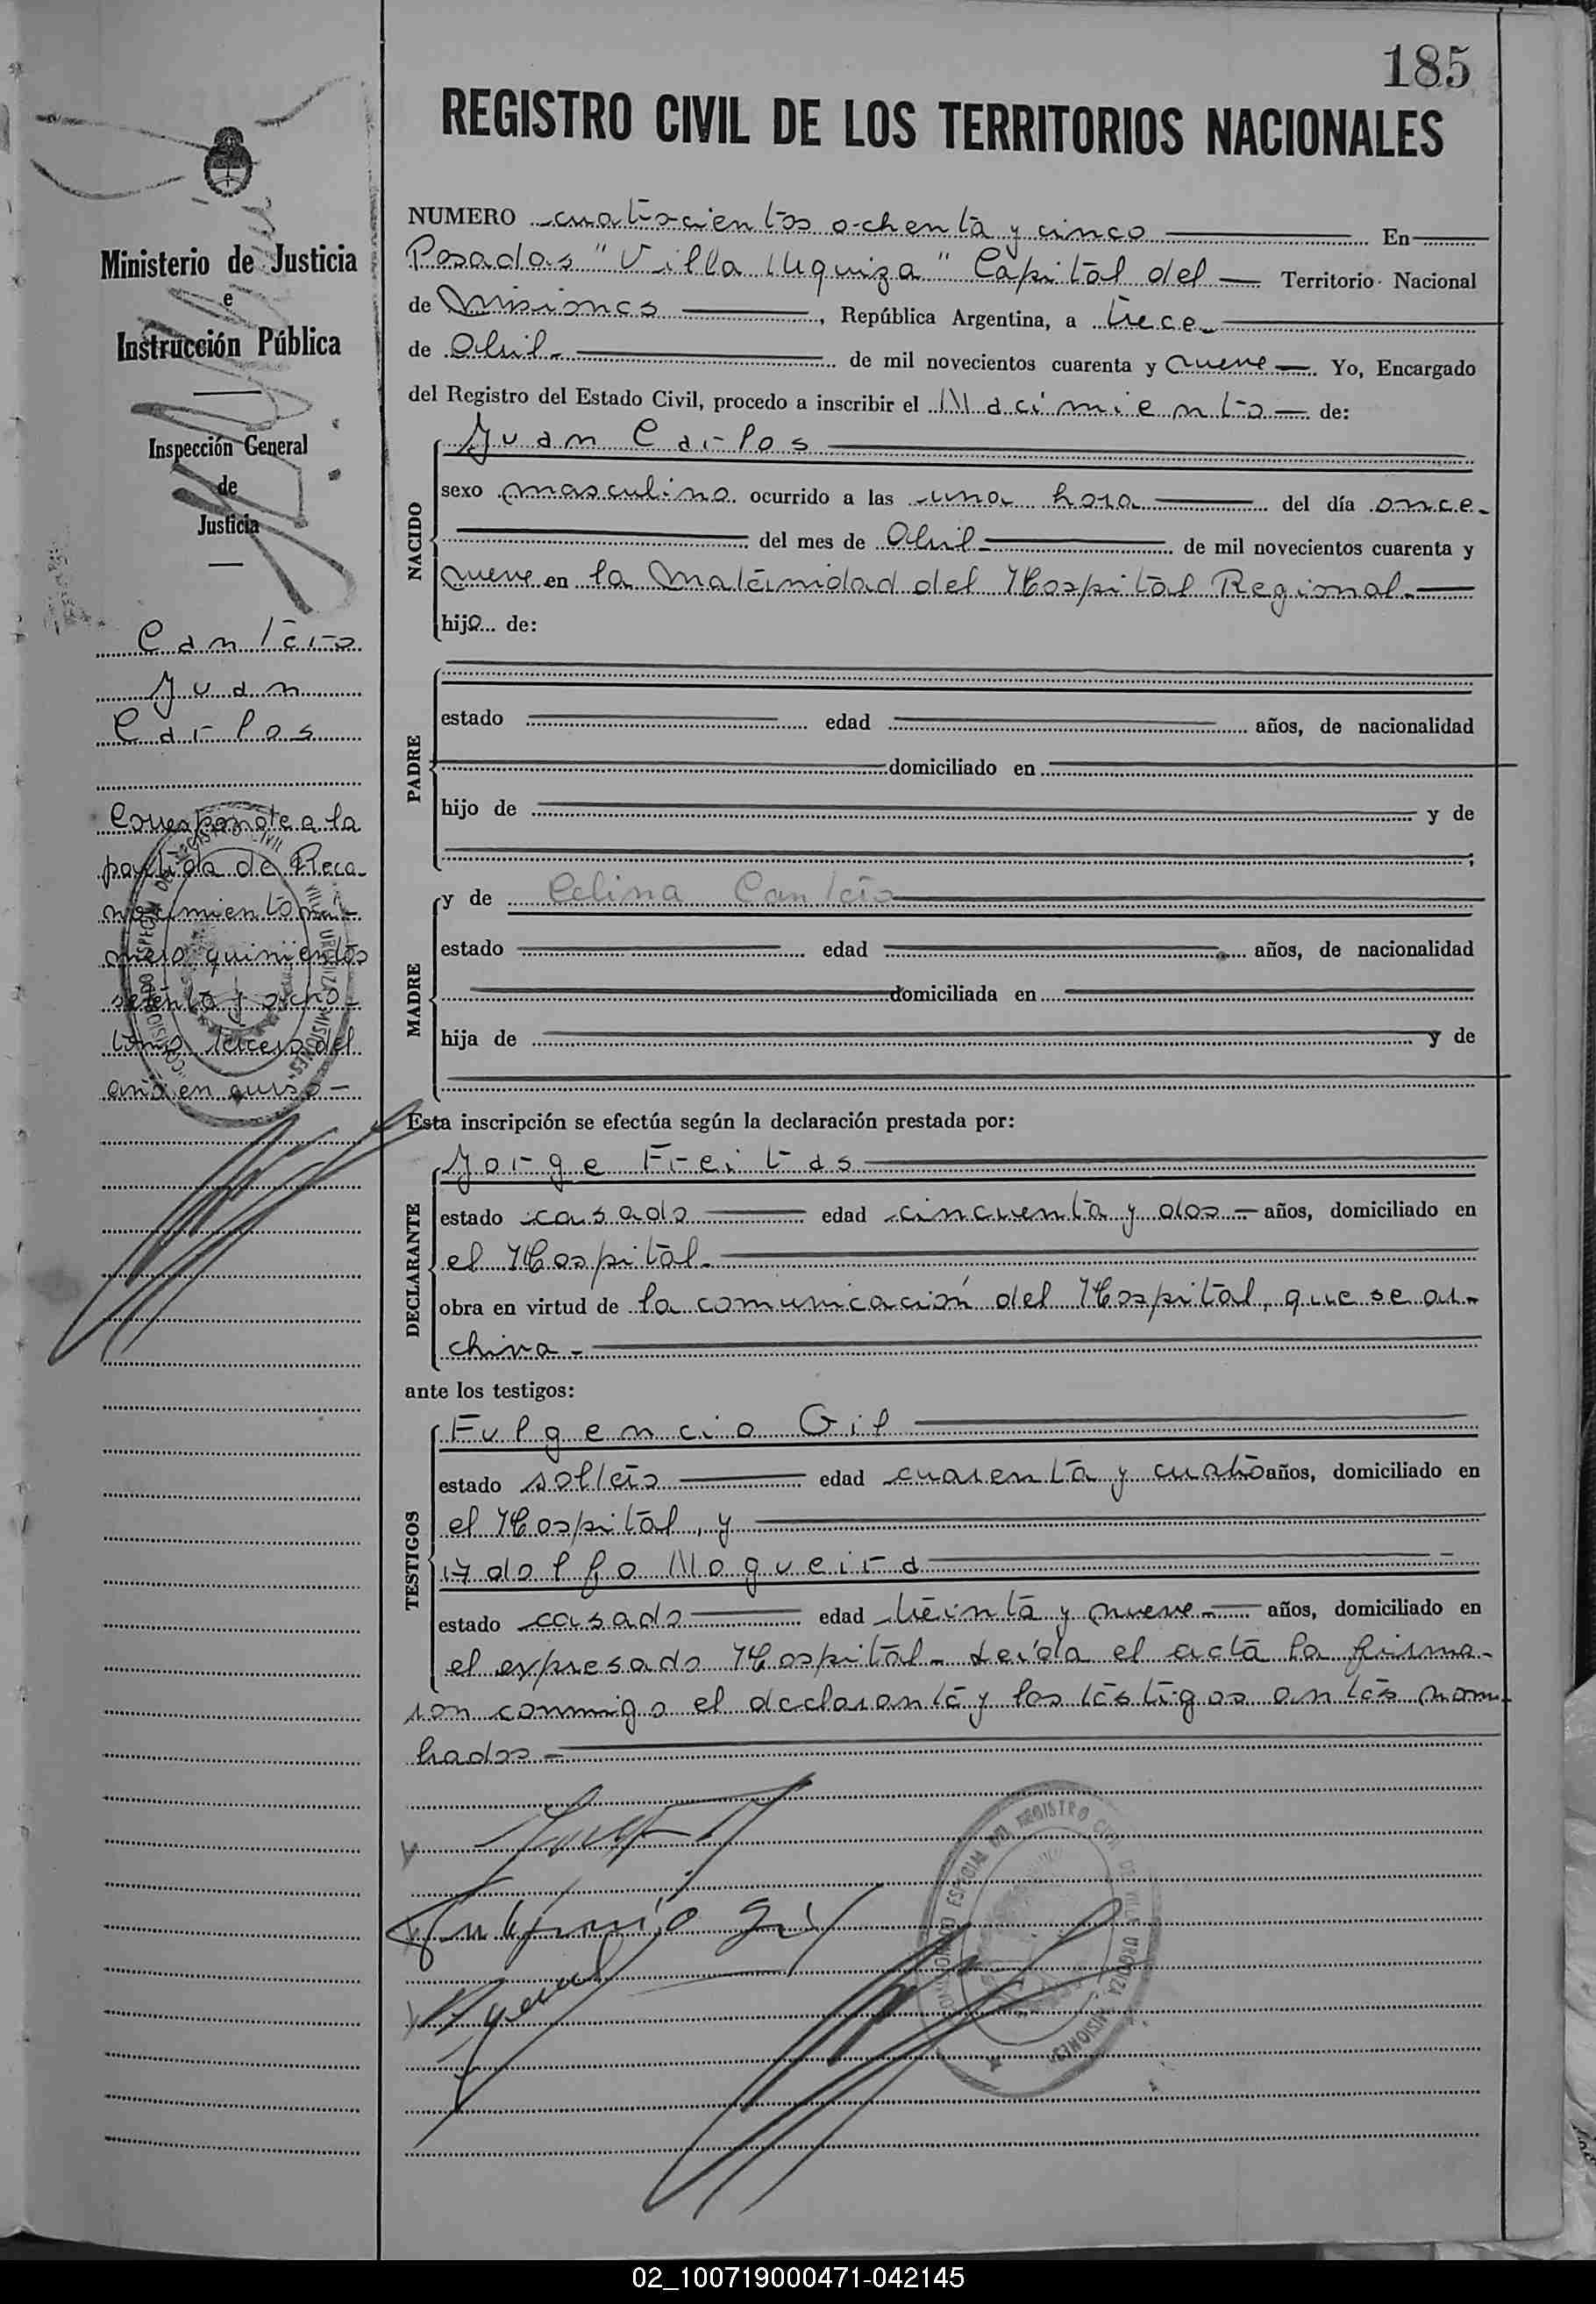 185
REGISTRO CIVIL DE LOS TERRITORIOS NACIONALES
Ministerio de Justicia
e
Instrucción Pública
Inspección General
de
Justicia
Cantero
Juan
Carlos
Corresponde a la
partida de Reco-
nocimiento nú-
mero quinientos
setenta y ocho
tomo tercero del
año en curso-
NUMERO cuatrocientos ochenta y cinco En
Posadas "Villa Urquiza" Capital del Territorio Nacional
de Misiones, República Argentina, a trece
de Abril de mil novecientos cuarenta y nueve Yo, Encargado
del Registro del Estado Civil, procedo a inscribir el Nacimiento de:
NACIDO
Juan Carlos
sexo masculino ocurrido a las una hora del día once
del mes de Abril de mil novecientos cuarenta y
nueve en la Maternidad del Hospital Regional.
hijo de:
PADRE
estado edad años, de nacionalidad
domiciliado en
hijo de y de
;
MADRE
y de Celina Cantero
estado edad años, de nacionalidad
domiciliada en
hija de y de
Esta inscripción se efectúa según la declaración prestada por:
DECLARANTE
Jorge Freitas
estado casado edad cincuenta y dos años, domiciliado en
el Hospital.
obra en virtud de la comunicación del Hospital, que se ar-
chiva-
ante los testigos:
TESTIGOS
Fulgencio Gil
estado soltero edad cuarenta y cuatro años, domiciliado en
el Hospital, y
Adolfo Nogueira
estado casado edad treinta y nueve años, domiciliado en
el expresado Hospital- Leída el acta la firma-
ron conmigo el declarante y los testigos antes nom-
brados-
Fulgencio Gil
02_100719000471-042145